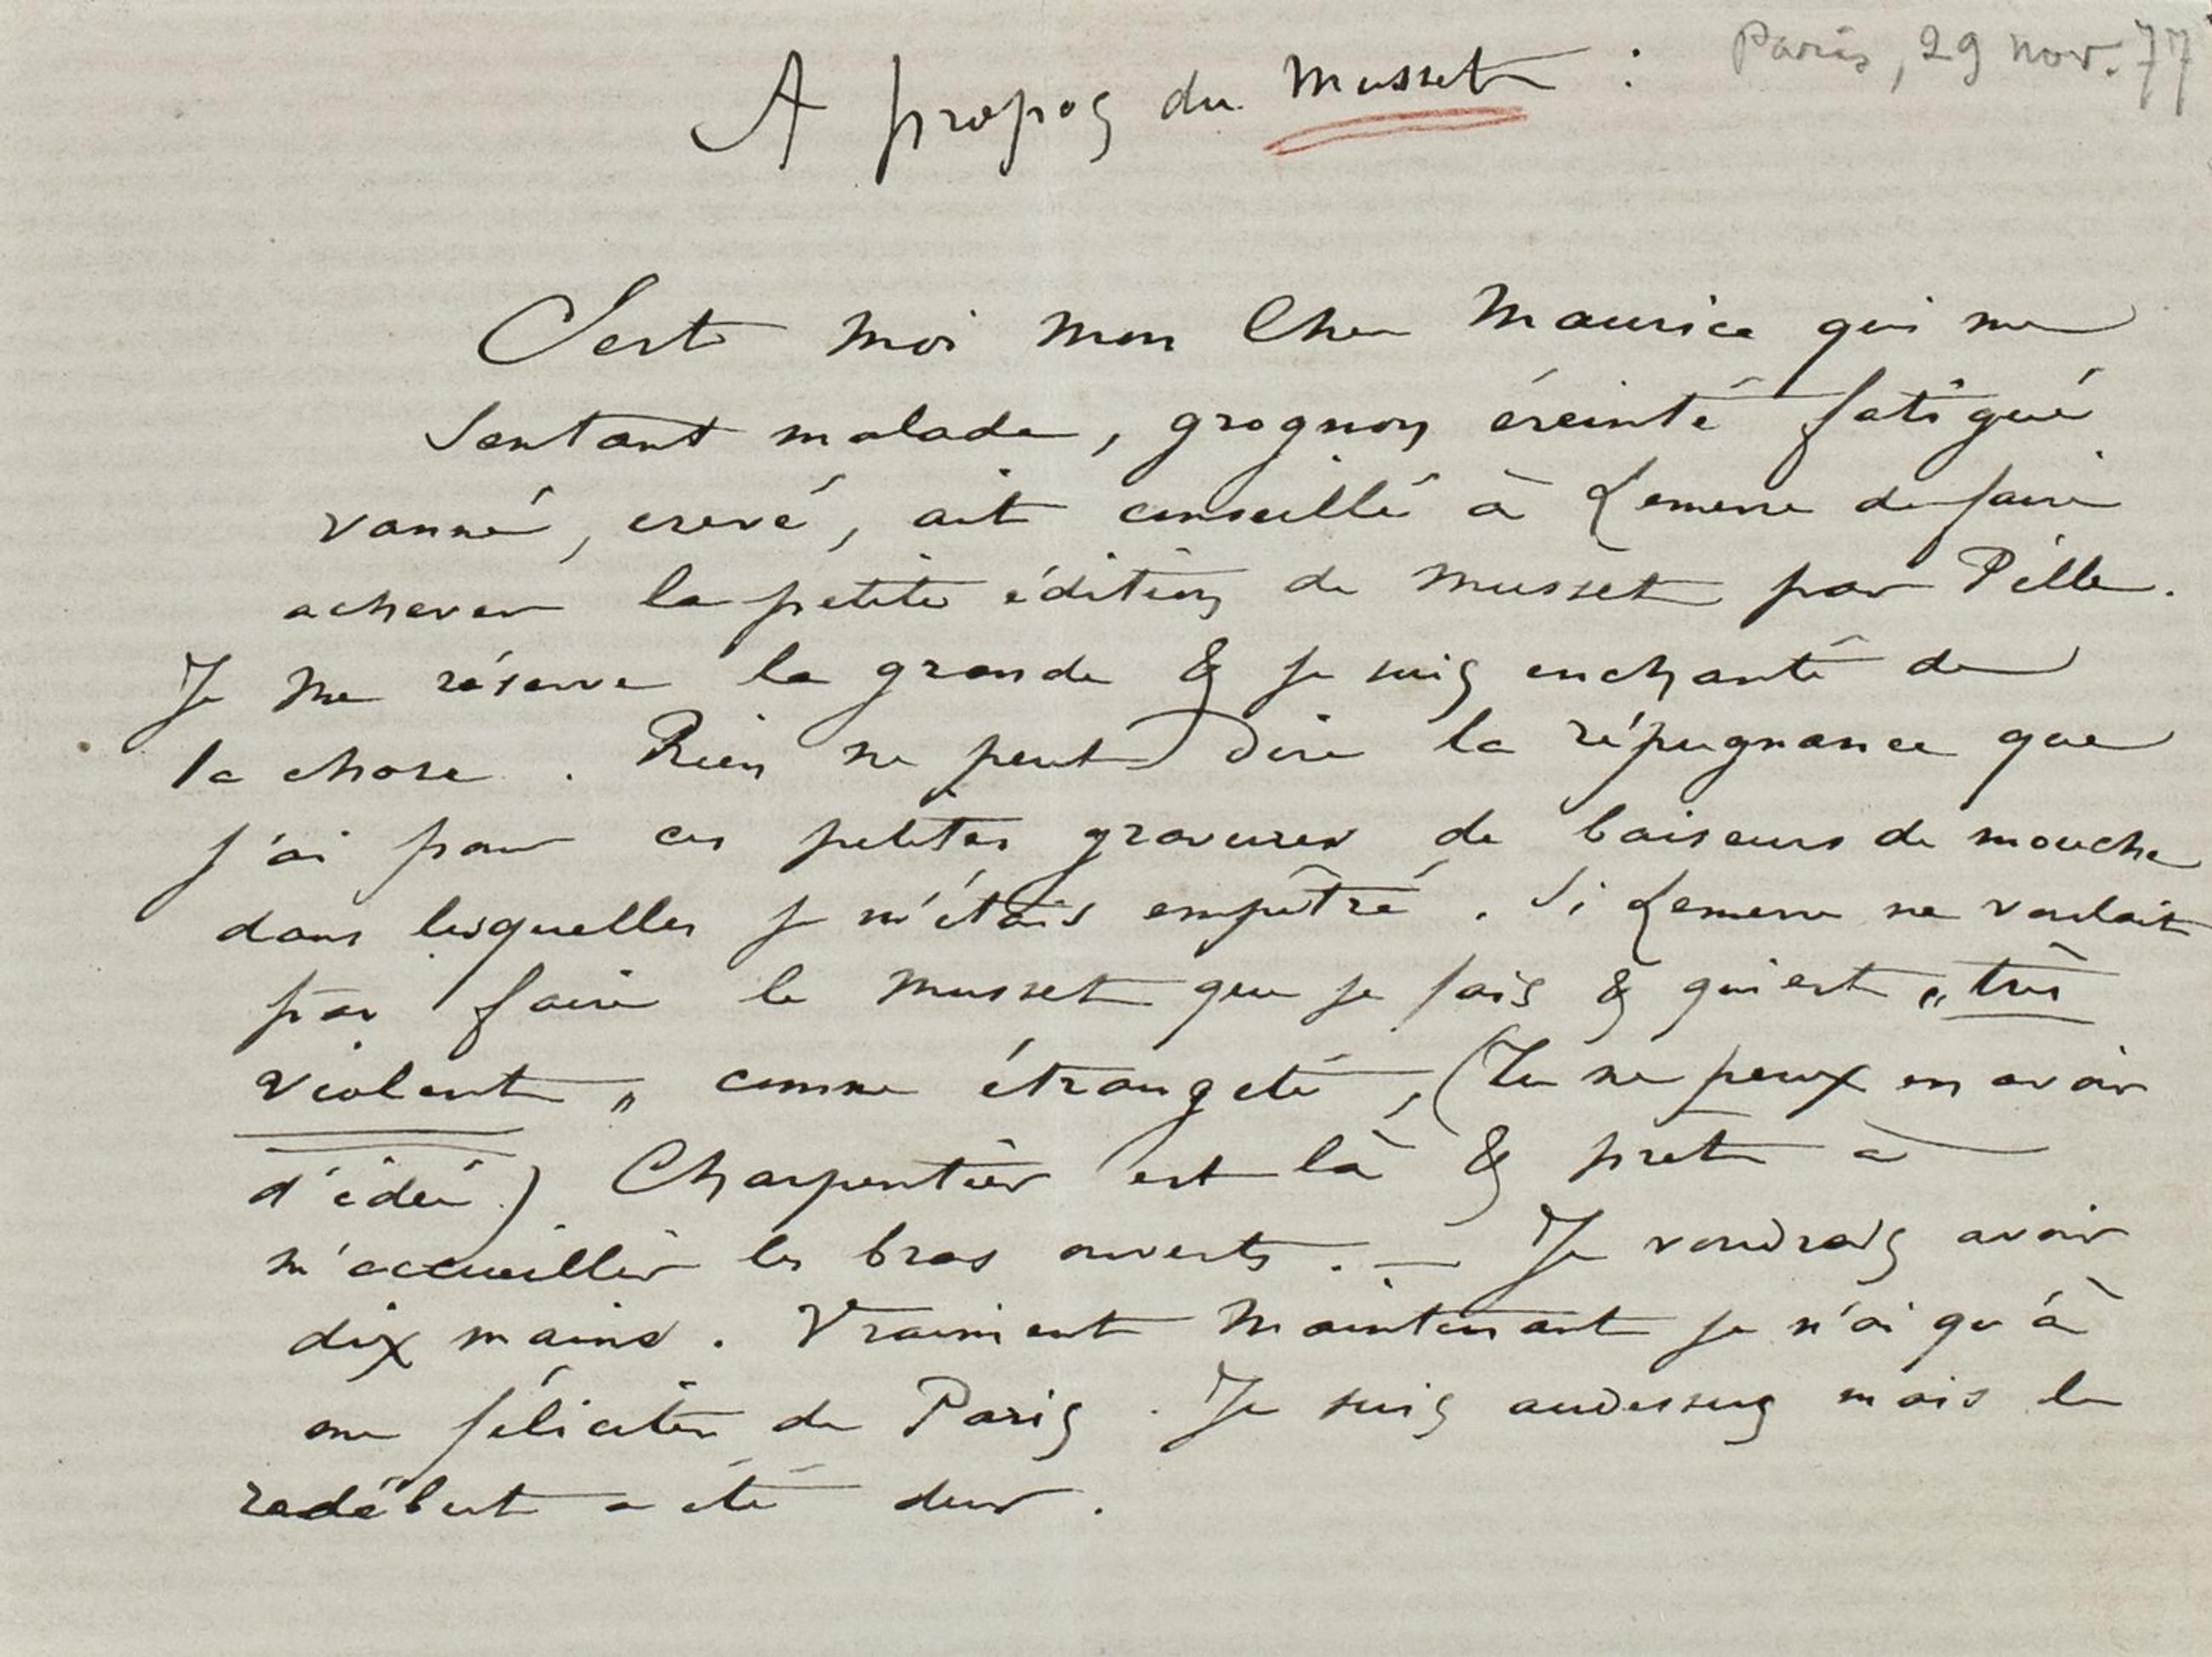 Paris, 29 nov. 77
A propos du Musset :
C'est moi mon Cher Maurice qui me
sentant malade, grognon éreinté fatigué
vanné, crevé, ait conseillé à Lemerre de faire
achever la petite édition de Musset par Pille.
Je me réserve la grande & je suis enchanté de
la chose. Rien ne peut dire la répugnance que
j'ai pour ces petites gravures de baiseurs de mouche
dans lesquelles je m'étais empêtré. Si Lemerre ne voulait
pas faire le Musset que je fais & qui est „très
violent„ comme étrangeté, (Tu ne peux en avoir
d'idée.) Charpentier est là & prêt à
m'accueillir les bras ouverts. — Je voudrais avoir
dix mains. Vraiment maintenant je n'ai qu'à
me féliciter de Paris. Je suis audessus mais le
redébut a été dur.